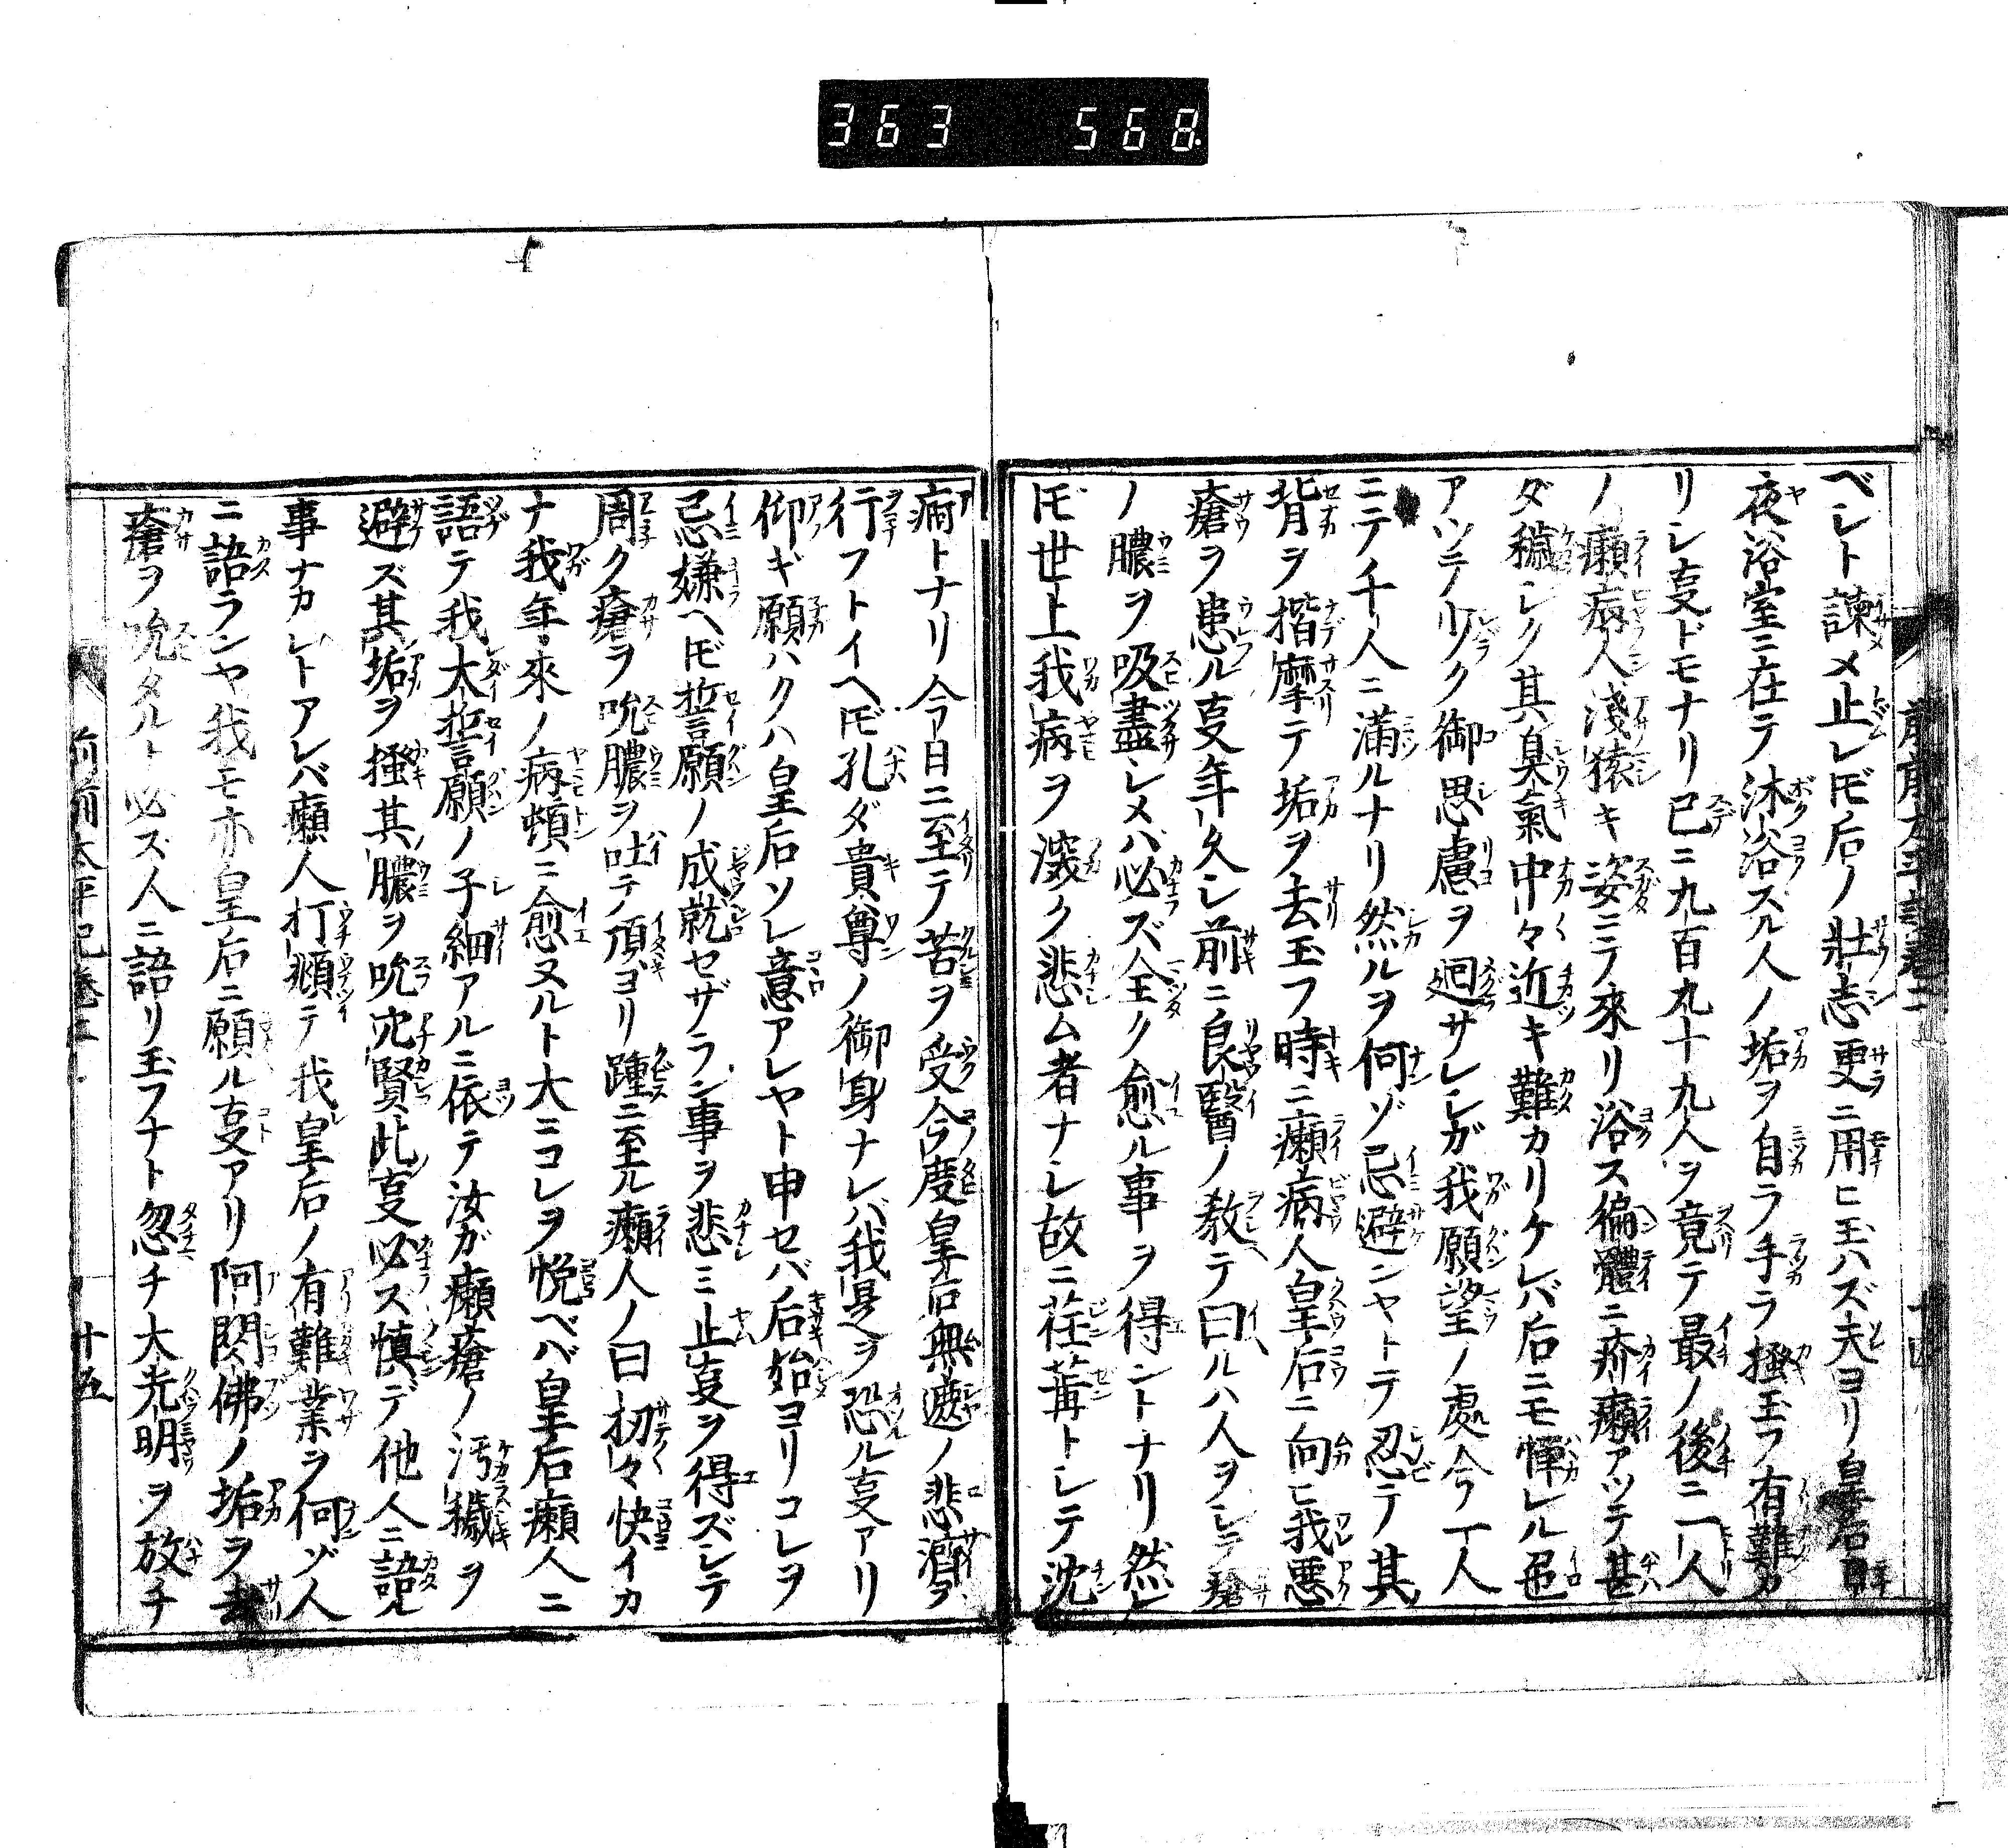 363 568
ベシト諫メ止レ𪜈后ノ壮志更ニ用ヒ玉ハズ夫ヨリ皇后日
夜浴室ニ在テ沐浴スル人ノ垢ヲ自ラ手ラ掻玉フ有難カ
リシ㕝ドモナリ已ニ九百九十九人ヲ竟テ最ノ後ニ一人
ノ癩病人淺猿キ姿ニテ來リ浴ス徧體ニ疥癩アツテ甚
ダ穢シク其臭氣中々近キ難カリケレバ后ニモ憚レル色
アツテ少ク御思慮ヲ廻サレシガ我願望ノ處今一人
ニテ千人ニ滿ルナリ然ルヲ何ゾ忌避ンヤトテ忍テ其
背ヲ揩摩テ垢ヲ去玉フ時ニ癩病人皇后ニ向ヒ我惡
瘡ヲ患ル㕝年久シ前ニ良醫ノ教テ曰ルハ人ヲシテ瘡
ノ膿ヲ吸盡シメバ必ズ全ク愈ル事ヲ得ントナリ然レ
𪜈世上我病ヲ深ク悲ム者ナシ故ニ荏苒トシテ沈
痾トナリ今日ニ至テ苦ヲ受今度皇后無遮ノ悲濟ヲ
行フトイヘ𪜈孔ダ貴尊ノ御身ナレバ我是ヲ恐ル㕝アリ
仰ギ願ハクハ皇后ソレ意アレヤト申セバ后始ヨリコレヲ
忌嫌ヘ𪜈誓願ノ成就セザラン事ヲ悲ミ止㕝ヲ得ズシテ
周ク瘡ヲ吮膿ヲ吐テ頂ヨリ踵ニ至ル癩人ノ曰扨々快イカ
ナ我年來ノ病頓ニ愈ヌルト大ニコレヲ悦ベバ皇后癩人ニ
語テ我大誓願ノ子細アルニ依テ汝ガ癩瘡ノ汚穢ヲ
避ズ其垢ヲ掻其膿ヲ吮穴賢此㕝必ズ慎デ他人ニ語ル
事ナカレトアレバ癩人打頷テ我皇后ノ有難業ヲ何ゾ人
ニ語ランヤ我モ亦皇后ニ願ル㕝アリ阿閦佛ノ垢ヲ去
瘡ヲ吮タルト必ズ人ニ語リ玉フナト忽チ大光明ヲ放チ
前前太平記巻三 十五